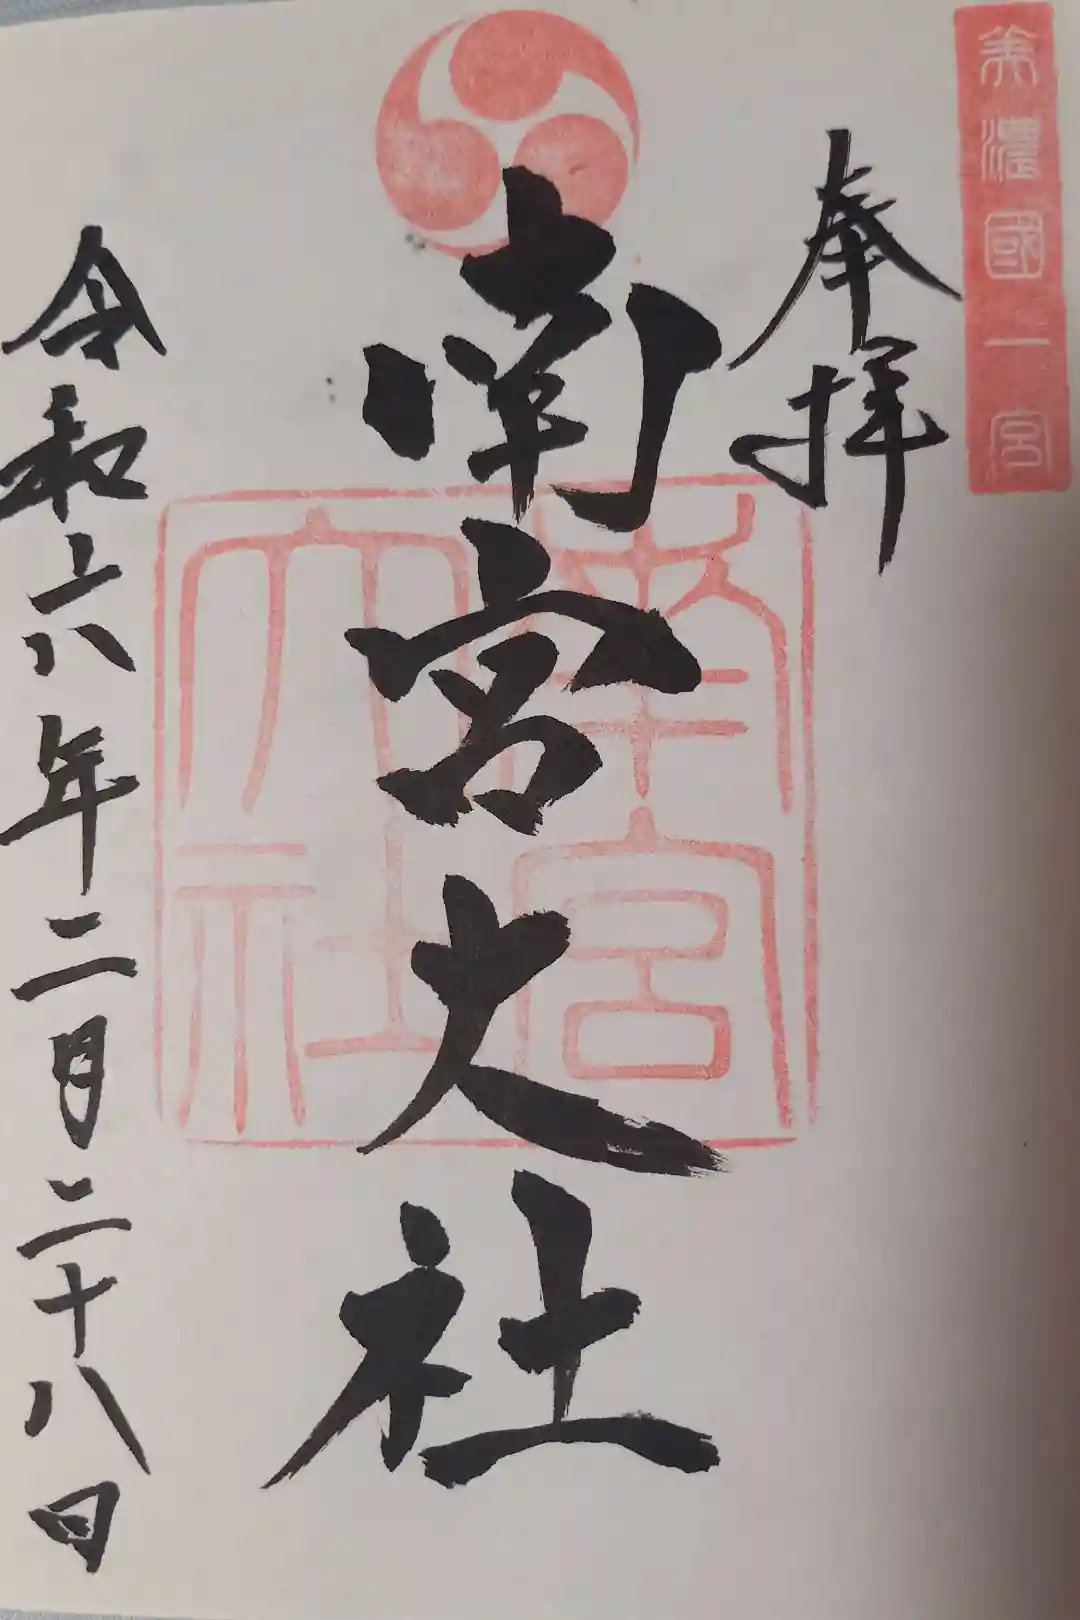 美濃國一宮
奉拝
南宮大社
南宮
大社
令和六年二月二十八日